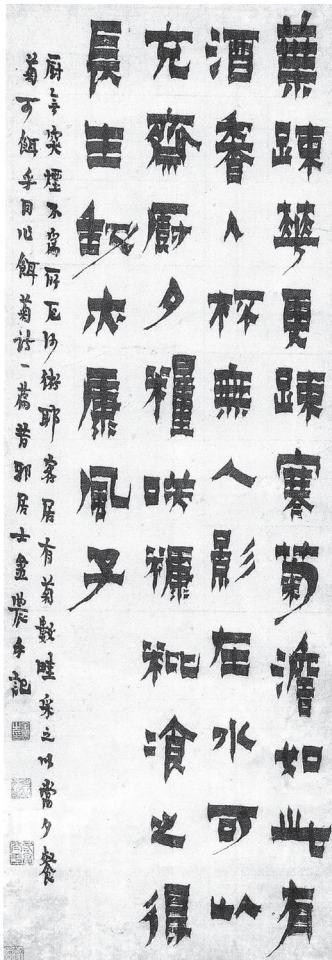 葉疎華更疎寒菊澹如此有
酒香入杯無人影在水可以
充齋廚夕糧咲糠粃湌之得
長生康風子
廚無突煙不為所厄耶客居有菊數畦采之以當夕餐
菊可餌乎因作餌菊詩一篇昔邪居士金農手記